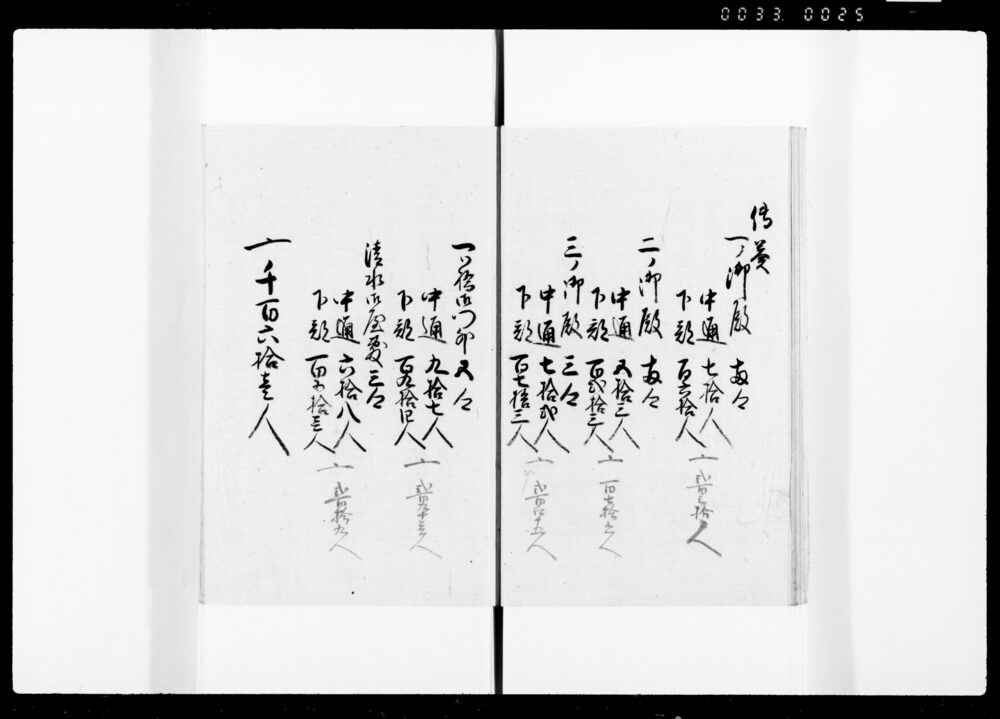 0033 0025
傳奏
一ノ御殿 両
中通 七拾人
下部 百六拾人
〆 弐百三拾人
二ノ御殿 両
中通 五拾三人
下部 百弐拾三人
〆 百七拾六人
三ノ御殿 三
中通 七拾弐人
下部 百七拾三人
〆 弐百四十五人
一ツ橋御門外 五
中通 九拾七人
下部 百九拾四人
〆 弐百九十壱人
清水御屋敷 三
中通 六拾八人
下部 百五拾壱人
〆 弐百拾九人
〆 千百六拾壱人